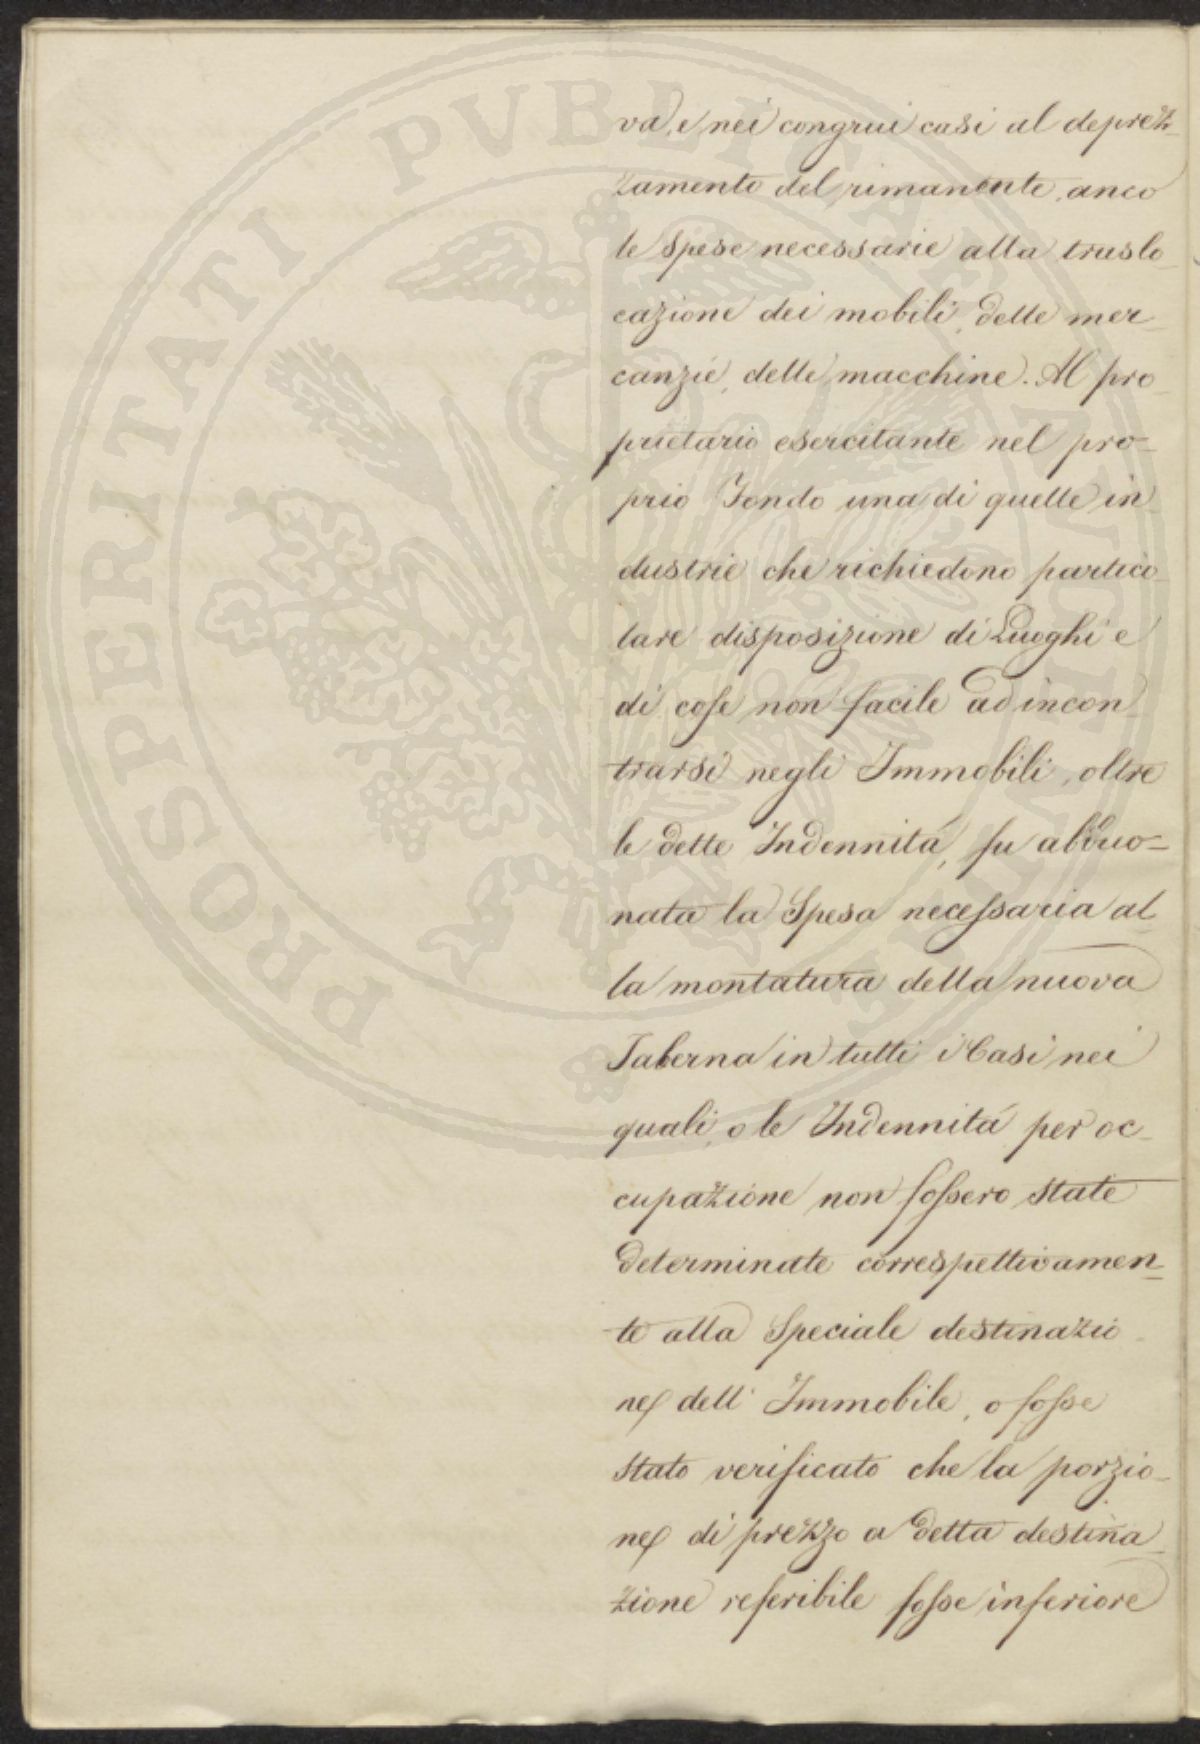 va, e nei congrui casi al deprez-
zamento del rimanente, anco
le spese necessarie alla traslo-
cazione dei mobili, delle mer-
canzie, delle macchine. Al pro-
prietario esercitante nel pro-
prio Fondo una di quelle in-
dustrie che richiedono partico-
lare disposizione di Luoghi e
di cose non facile ad incon-
trarsi negli Immobili, oltre
le dette Indennità, fu abbuo=
nata la Spesa necessaria al-
la montatura della nuova
Taberna in tutti i Casi nei
quali, o le Indennità per oc-
cupazione non fossero state
determinate correspettivamen-
te alla Speciale destinazio-
ne dell' Immobile, o fosse
stato verificato che la porzio-
ne di prezzo a detta destina-
zione referibile fosse inferiore
PROSPERITATI PVBLICAE